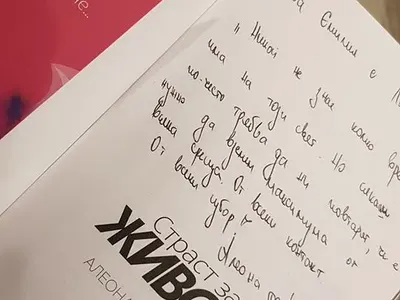 не...
за Емилия с
"Никой не знае колко вре
има на този свят. Но сякаш
по-често трябва да ни повтарят, че е
нужно да вземем максимума
от всяка среща. От всеки контакт
От всеки избор."
Алеона
Страст за
ЖИВО
АЛЕОНА